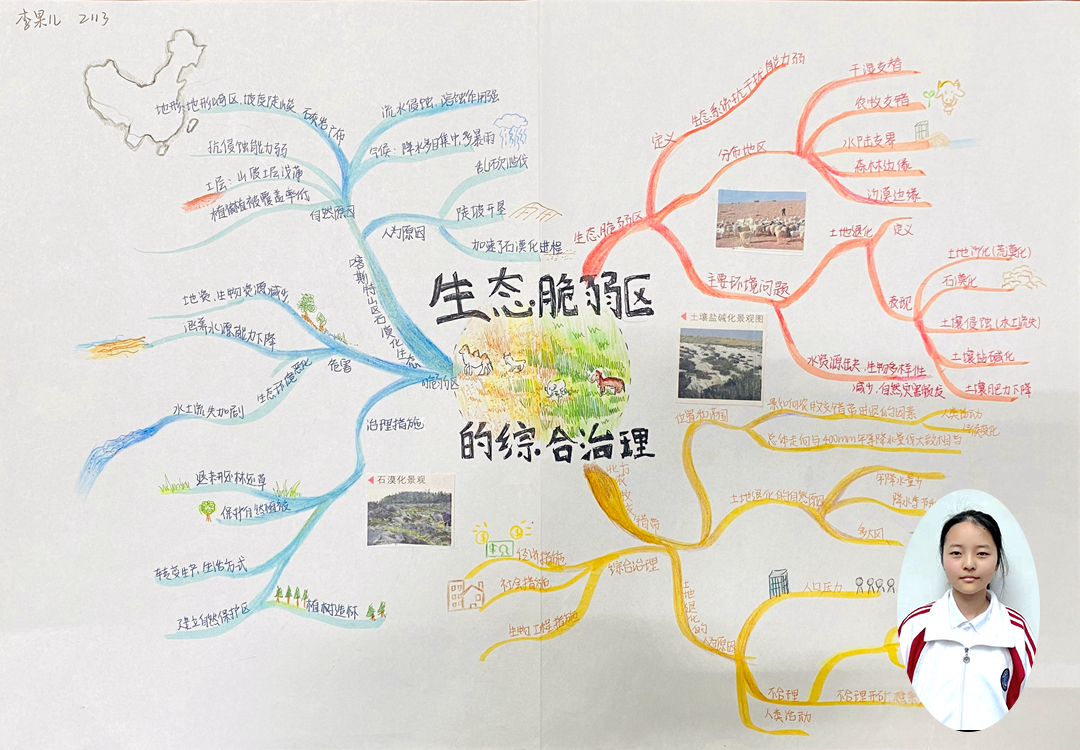 李果儿 2113
生态脆弱区
的综合治理
地形:地形崎岖,坡度陡峻
石灰岩广布
抗侵蚀能力弱
土层:山区土层浅薄
植被:植被覆盖率低
自然原因
流水侵蚀,溶蚀作用强
气候:降水多且集中,多暴雨
乱砍滥伐
陡坡开垦
加速了石漠化进程
人为原因
喀斯特山区石漠化生态
脆弱区
地表生物资源减少
涵养水源能力下降
生态环境恶化
水土流失加剧
危害
治理措施
退耕还林还草
保护自然植被
转变生产、生活方式
建立自然保护区
植树造林
石漠化景观
生态脆弱区
定义
生态系统抗干扰能力弱
分布地区
干湿交替
农牧交错
水陆交界
森林边缘
沙漠边缘
主要环境问题
土地退化
定义
表现
土地沙化(荒漠化)
石漠化
土壤侵蚀(水土流失)
土壤盐碱化
土壤肥力下降
水资源缺失,生物多样性
减少,自然灾害频发
土壤盐碱化景观图
北方农牧交错带
位置和范围
总体走向与400mm年等降水量线大致相当
人类活动
土地退化的自然原因
年降水量少
多大风
综合治理
经济措施
社会措施
生物工程措施
土地退化的
人为原因
人口压力
不合理
人类活动
不合理开矿